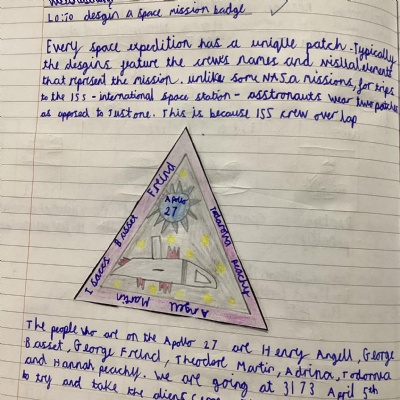 LO: To desgin a space mission badge
Every space expedition has a uniqlle patch. Typically
the desgins featur the crew's names and visllal elements
that represent the mission. unlike some NASA missions, for trips
to the ISS - international space station - asstronauts wear two patches
as opposed to Just one. This is because ISS crew over lap
Freind
Basset
Isaacs
Apollo
27
peachy
Angell
Martin
The people who are on the Apollo 27 are Henry Angell, George
Basset, George Freind, Theodore Martin, Adrina, Todorova
and Hannah peachy. We are going at 3173 April 5th
to try and take the aliens